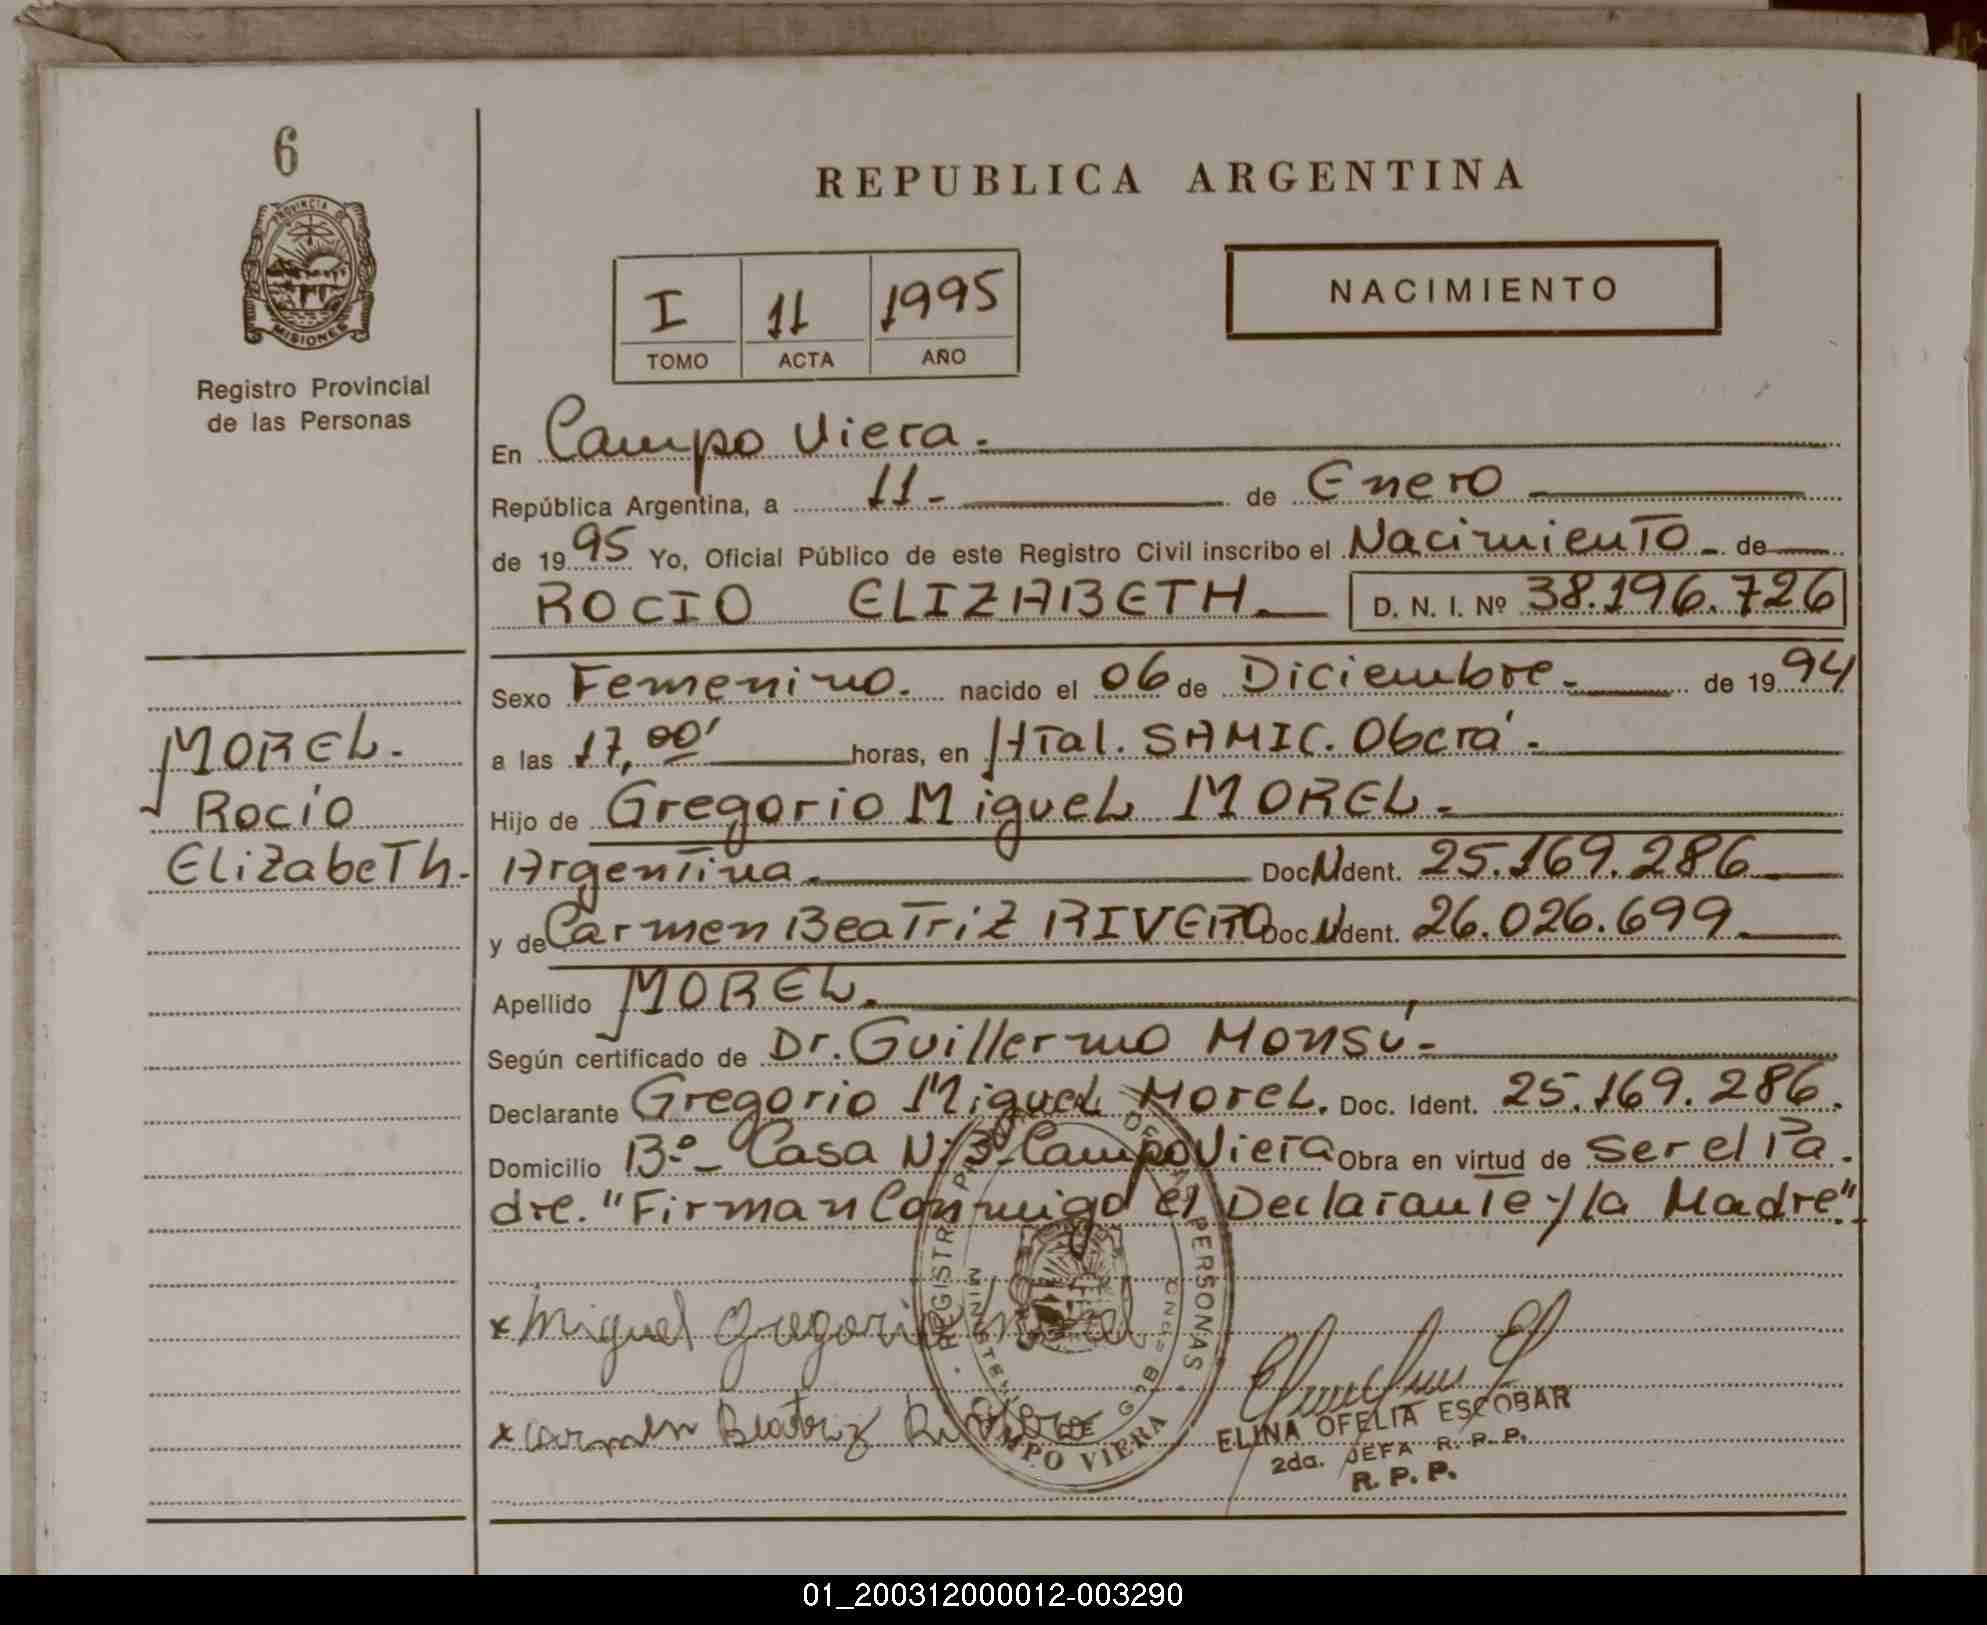 6
PROVINCIA DE
MISIONES
Registro Provincial
de las Personas
REPUBLICA ARGENTINA
I 11 1995
TOMO ACTA AÑO
NACIMIENTO
En Campo Viera.
República Argentina, a 11- de Enero
de 1995 Yo, Oficial Público de este Registro Civil inscribo el Nacimiento de
ROCIO ELIZABETH. D. N. I. Nº 38.196.726
Sexo Femenino. nacido el 06 de Diciembre. de 1994
a las 17,00' horas, en HTal. SAMIC. Oberá.
Hijo de Gregorio Miguel MOREL.
Argentina. Doc. Ident. 25.169.286
y de Carmen Beatriz RIVERO Doc. Ident. 26.026.699
Apellido MOREL.
Según certificado de Dr. Guillermo Monsú.
Declarante Gregorio Miguel Morel. Doc. Ident. 25.169.286.
Domicilio Bº- Casa N: 3- Campo Viera Obra en virtud de ser el Pa
dre. "Firman Conmigo el Declarante y la Madre"
MOREL.
Rocío
Elizabeth.
x Miguel Gregorio
x Carmen Beatriz
REGISTRO PERSONAS
CAMPO VIERA
ELINA OFELIA ESCOBAR
2da. JEFA R. P. P.
R. P. P.
01_200312000012-003290